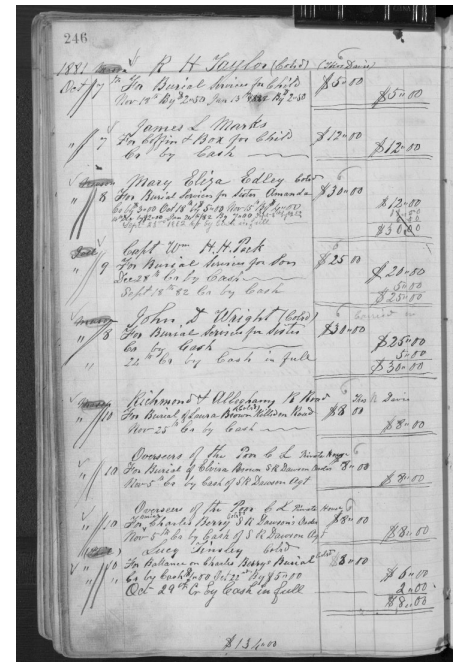 246
1881 R H Taylor (Cold)
Oct 7th For Burial Services for Child $5"00
Nov 19th By $2"50 Jan 13th 1882 By 2"50 $5"00
James L Marks
" 7 For Coffin & Box for Child $12"00
Cr by Cash $12"00
Mary Eliza Edley Cold
" 8 For Burial Services for Sister Amanda $30"00
$12"00
$30"00
Capt Wm H. H. Peck
" 9 For Burial Services for Son $25"00
Dec 28th Cr by Cash $20"00
Sept 18th 82 Cr by Cash 5"00
$25"00
John D Wright (Cold)
" 8 For Burial Services for Sister $30"00
Cr by Cash $25"00
24th Cr by Cash in full 5"00
$30"00
Richmond & Alleghany R Road
" 10 For Burial of Laura Brown Cold Killed on Road $8"00
Nov 25th Cr by Cash $8"00
Overseers of the Poor C L
" 10 For Burial of Elvira Brown S R Dawson Order 8"00
Nov 5th Cr by Cash of S R Dawson Agt $8"00
Overseers of the Poor C L
" 10 For Charles Berry S R Dawson's Order $8"00
Nov 5th Cr by Cash of S R Dawson Agt $8"00
Lucy Tinsley Cold
" 10 For Ballance on Charles Berrys Burial $8"00
" Cr by Cash Oct 22nd By $5"00 $6"00
Oct 29th Cr by Cash in full 2"00
$8"00
$134"00